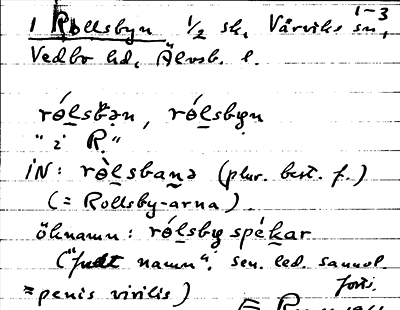 1 Rollsbyn ½ sk, Vårviks sn, 1–3
Vedbo hd, Älvsb. l.
rólsbən, rólsbyn
"i R."
iN: ròlsbanə (plur. best. f.)
(= Rollsby-arna).
öknamn: rólsbyspékar
namn". sen. led. sannol.
= penis virilis)